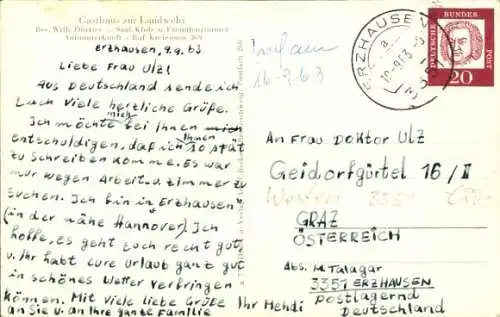 Gasthaus zur Landwehr
Bes. Wilh. Dörries - Saal, Klub- u. Fremdenzimmer
Autounterkunft - Ruf Kreiensen 369
Erzhausen, 9.9.63
Liebe Frau Ulz!
Aus Deutschland sende ich
Euch viele herzliche Grüße.
Ich möchte mich bei Ihnen
entschuldigen, daß ich Ihnen so spät
zu schreiben komme. Es war
nur wegen Arbeit u. zimmer zu
suchen. Ich bin in Erzhausen
(in der nähe Hannover) Ich
hoffe, es geht euch recht gut
u. Ihr habt eure Urlaub ganz gut
in schönes Wetter verbringen
können. Mit viele liebe Grüße Ihr Mehdi
an Sie u. an Ihre ganze Familie
16.9.63
ERZHAUSEN
DEUTSCHE BUNDESPOST
20
An Frau Doktor Ulz
Geidorfgürtel 16/II
GRAZ
ÖSTERREICH
Abs. M. Talagar
3351 ERZHAUSEN
postlagernd
Deutschland